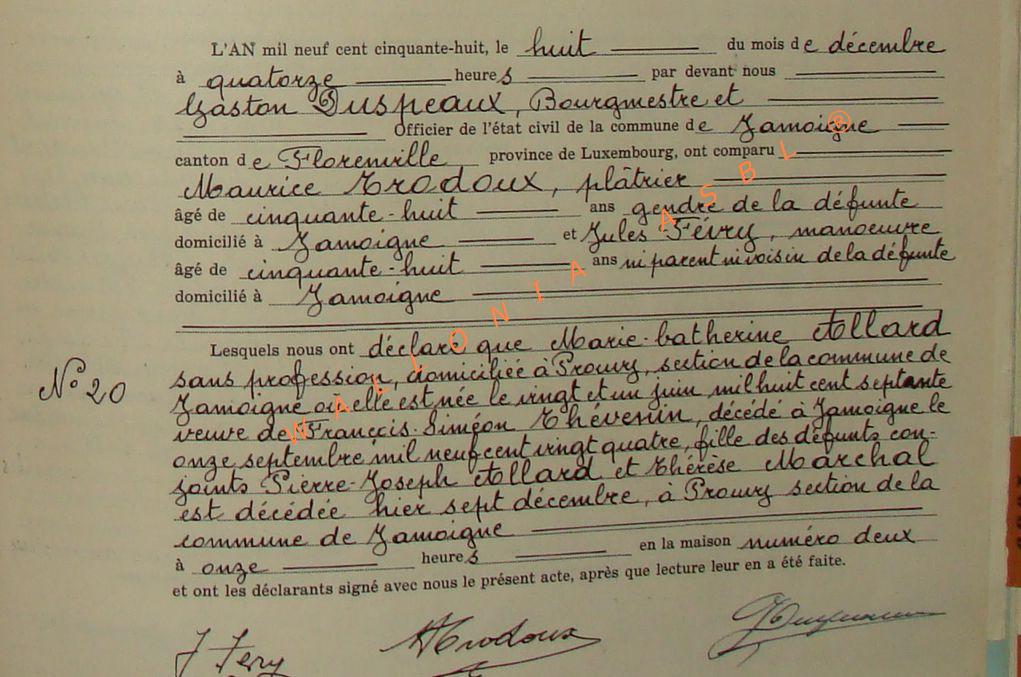 L'AN mil neuf cent cinquante-huit, le huit du mois de décembre
à quatorze heures par devant nous
Gaston Suspeaux, Bourgmestre et
Officier de l'état civil de la commune de Jamoigne
canton de Florenville, province de Luxembourg, ont comparu
Maurice Trodoux, plâtrier
âgé de cinquante-huit ans gendre de la défunte
domicilié à Jamoigne et Jules Févry, manoeuvre
âgé de cinquante-huit ans ni parent ni voisin de la défunte
domicilié à Jamoigne
Lesquels nous ont déclaré que Marie-Catherine Allard
N° 20
sans profession, domiciliée à Prouvy, section de la commune de
Jamoigne où elle est née le vingt et un juin mil huit cent septante
veuve de François-Siméon Thévenin, décédé à Jamoigne le
onze septembre mil neuf cent vingt quatre, fille des défunts con-
joints Pierre-Joseph Allard et Thérèse Marchal
est décédée hier sept décembre, à Prouvy section de la
commune de Jamoigne
à onze heures en la maison numéro deux
et ont les déclarants signé avec nous le présent acte, après que lecture leur en a été faite.
J Fery Trodoux
WALLONIA ASBL ®